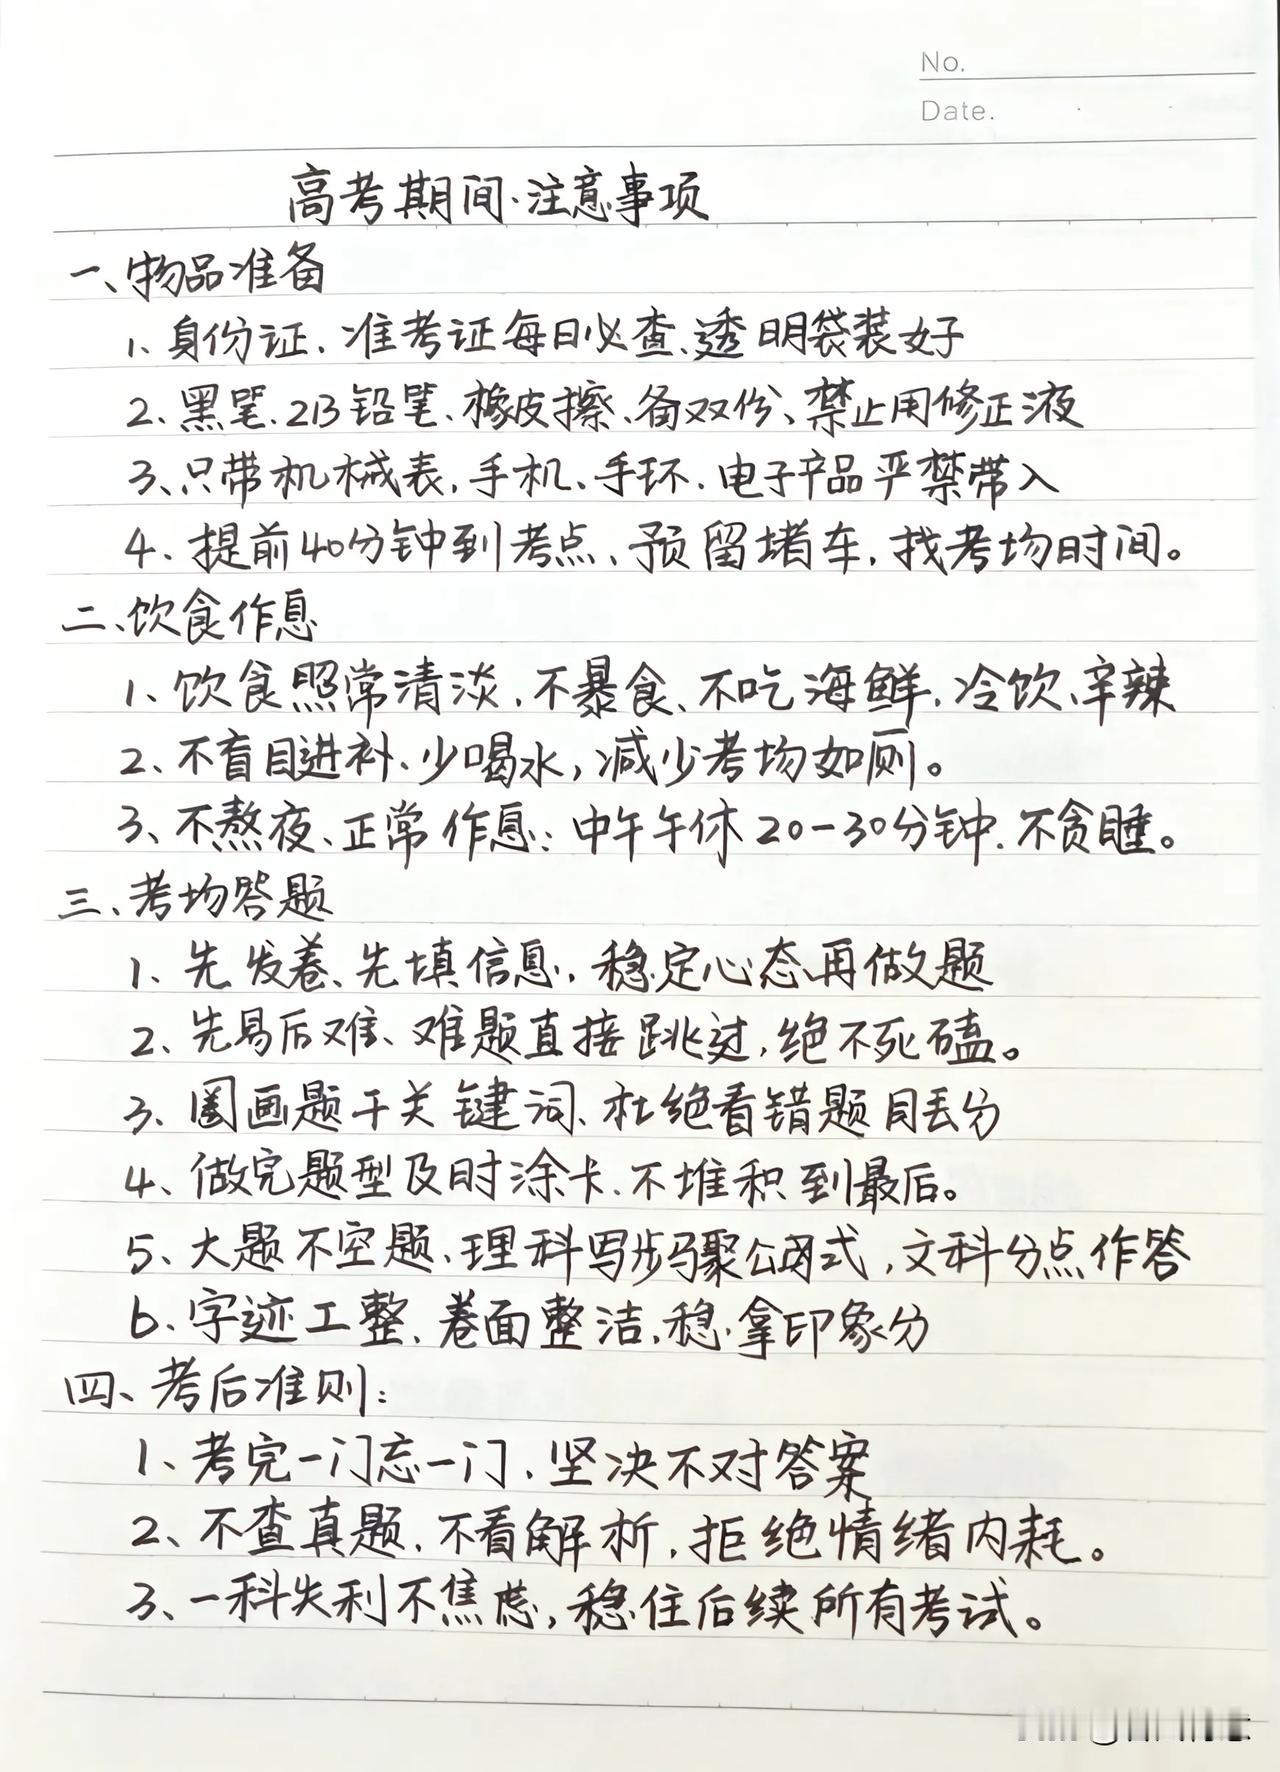 No.
Date.
高考期间·注意事项
一、物品准备
1、身份证、准考证每日必查、透明袋装好
2、黑笔、2B铅笔、橡皮擦、备双份、禁止用修正液
3、只带机械表,手机、手环、电子产品严禁带入
4、提前40分钟到考点、预留堵车,找考场时间。
二、饮食作息
1、饮食照常清淡,不暴食、不吃海鲜,冷饮、辛辣
2、不盲目进补、少喝水,减少考场如厕。
3、不熬夜、正常作息:中午午休20-30分钟.不贪睡。
三、考场答题
1、先发卷、先填信息,稳定心态再做题
2、先易后难、难题直接跳过,绝不死磕。
3、圈画题干关键词、杜绝看错题目丢分
4、做完题型及时涂卡、不堆积到最后。
5、大题不空题、理科写步骤公式,文科分点作答
6、字迹工整、卷面整洁,稳拿印象分
四、考后准则:
1、考完一门忘一门,坚决不对答案
2、不查真题、不看解析,拒绝情绪内耗。
3、一科失利不焦虑,稳住后续所有考试。